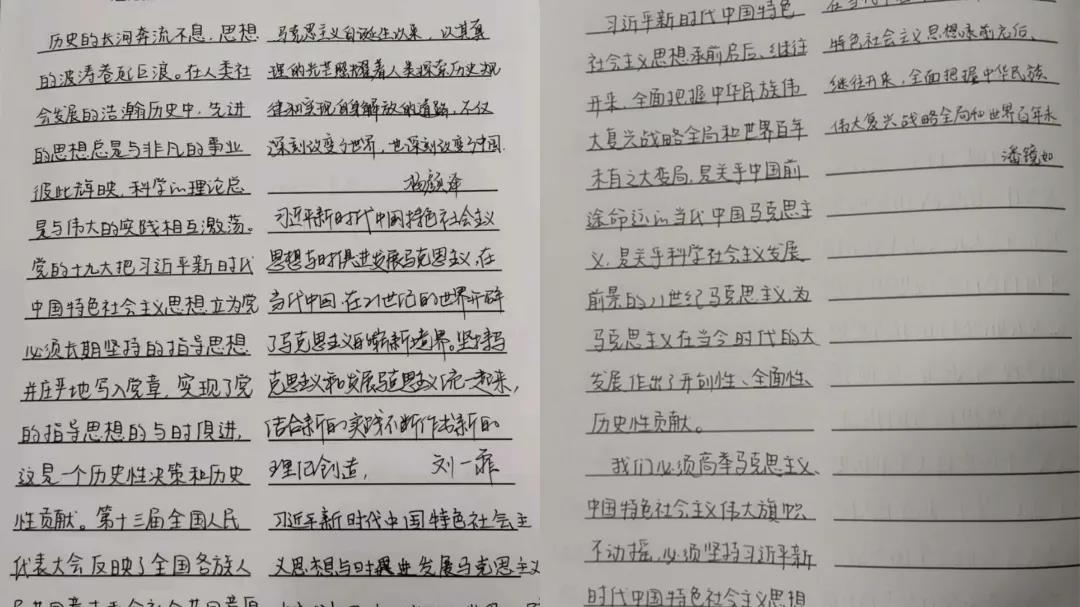 历史的长河奔流不息,思想
的波涛卷起巨浪。在人类社
会发展的浩瀚历史中,先进
的思想总是与非凡的事业
彼此辉映,科学的理论总
是与伟大的实践相互激荡。
党的十九大把习近平新时代
中国特色社会主义思想立为党
必须长期坚持的指导思想
并庄严地写入党章,实现了党
的指导思想的与时俱进,
这是一个历史性决策和历史
性贡献。第十三届全国人民
代表大会反映了全国各族人
马克思主义自诞生以来,以其真
理的光芒照耀着人类探索历史规
律和实现自身解放的道路,不仅
深刻改变了世界,也深刻改变了中国.
杨颜泽
习近平新时代中国特色社会主义
思想与时俱进发展马克思主义,在
当代中国,在21世纪的世界开辟
了马克思主义的崭新境界。坚持马
克思主义和发展马克思主义统一起来,
结合新的实践不断作出新的
理论创造,
刘一霏
习近平新时代中国特色社会主
义思想与时俱进发展马克思主义
习近平新时代中国特色
社会主义思想承前启后、继往
开来,全面把握中华民族伟
大复兴战略全局和世界百年
未有之大变局,是关乎中国前
途命运的当代中国马克思主
义,是关乎科学社会主义发展
前景的21世纪马克思主义,为
马克思主义在当今时代的大
发展作出了开创性、全面性、
历史性贡献。
我们必须高举马克思主义、
中国特色社会主义伟大旗帜
不动摇,必须坚持习近平新
时代中国特色社会主义思想
特色社会主义思想承前启后、
继往开来,全面把握中华民族
伟大复兴战略全局和世界百年未
潘镜如